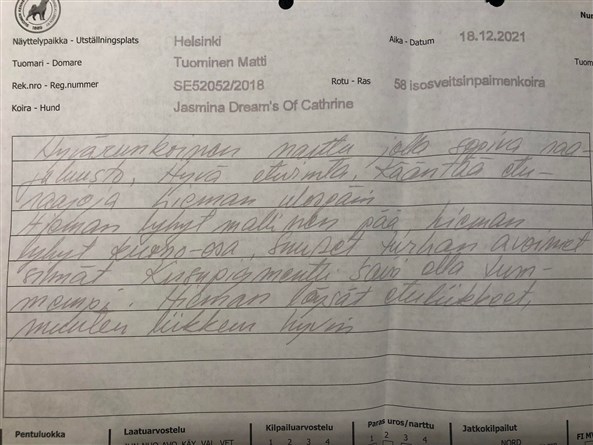 Nur
Näyttelypaikka - Utställningsplats Helsinki Aika - Datum 18.12.2021
Tuomari - Domare Tuominen Matti Tuom
Rek.nro - Reg.nummer SE52052/2018 Rotu - Ras 58 isosveitsinpaimenkoira
Koira - Hund Jasmina Dream's Of Cathrine
Hyvärunkoinen narttu jolla sopiva raa-
jaluusto, Hyvä eturinta, Kääntää etu-
raajoja hieman ulospäin
Hieman lyhyt mallinen pää, hieman
lyhyt kuono-osa, Suuret turhan avoimet
silmät Kirsupigmentti saisi olla tum-
mempi. Hieman löysät etuliikkeet,
muuten liikkuu hyvin
Pentuluokka Laatuarvostelu Kilpailuarvostelu Paras uros/narttu Jatkokilpailut
1 2 3 4 1 2 3 4 NORD FI MV